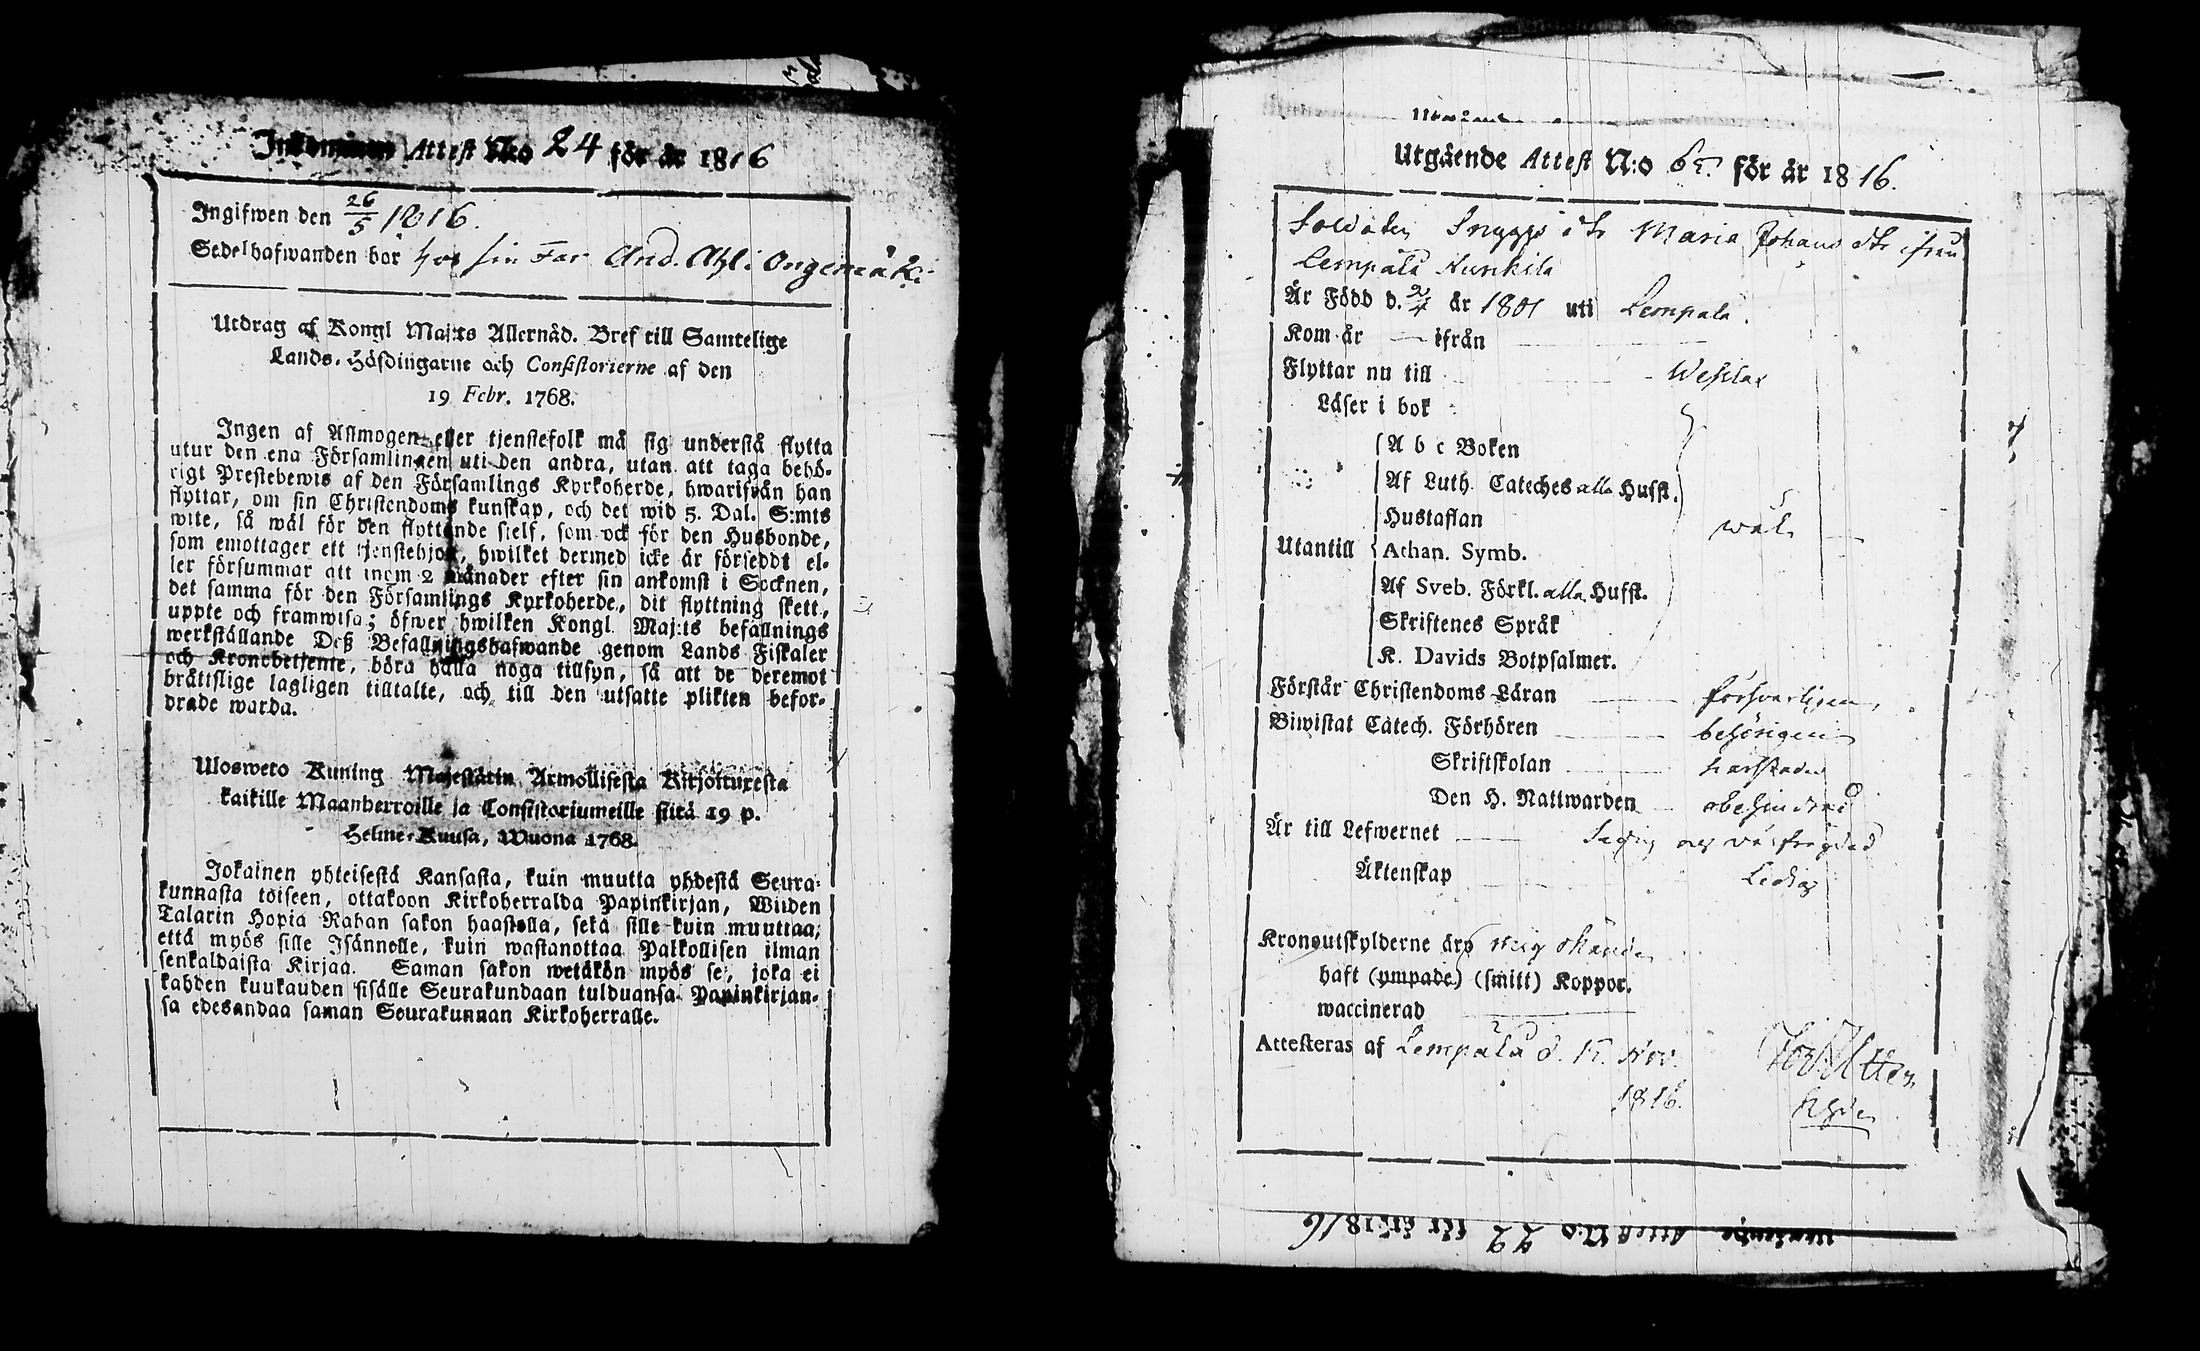 Inkommen Attest N:o 24 för år 1816
Ingifwen den 26/5 1816.
Sedelhafwanden bor hos sin Far And. Ahl: Ongemäki
Utdrag af Kongl Maj:ts Allernåd. Bref till Samtelige
Lands-Höfdingarne och Consistorierne af den
19 Febr. 1768.
Ingen af Allmogen eller tjenstefolk må sig understå flytta
utur den ena Församlingen uti den andra, utan att taga behö-
rigt Prestebewis af den Församlings Kyrkoherde, hwarifrån han
flyttar, om sin Christendoms kunskap, och det wid 5. Dal. S:mts
wite, så wäl för den flyttande sielf, som ock för den Husbonde,
som emottager ett tjenstehjon, hwilket dermed icke är förseddt el-
ler försummar att inom 2 månader efter sin ankomst i Socknen,
det samma för den Församlings Kyrkoherde, dit flyttning skett,
uppte och framwisa; öfwer hwilken Kongl. Maj:ts befallnings
werkställande Deß Befallningshafwande genom Lands Fiskaler
och Kronobetjente, böra hålla noga tillsyn, så att de deremot
bråttslige lagligen tilltalte, och till den utsatte plikten befor-
drade warda.
Ulosweto Kuning Majestätin Armollisesta Kirjoituxesta
kaikille Maanherroille ja Consistoriumeille siitä 19 p.
Helme-Kuusa, Wuona 1768.
Jokainen yhteisestä Kansasta, kuin muutta yhdestä Seura-
kunnasta toiseen, ottakoon Kirkoherralda Papinkirjan, Wiiden
Talarin Hopia Rahan sakon haastolla, sekä sille kuin muuttaa,
että myös sille Isännelle, kuin wastanottaa Palkollisen ilman
senkaldaista Kirjaa. Saman sakon wetäkön myös se, joka ei
kahden kuukauden sisälle Seurakundaan tulduansa Papinkirjan-
sa edesandaa saman Seurakunnan Kirkoherralle.
Utgående Attest N:o 65. för år 1816.
Soldaten Snyggs dtr Maria Johans dtr ifrån
Lempälä Kunkila
Är Född d. 2/4 år 1801 uti Lempälä.
Kom år — ifrån
Flyttar nu till Wesilax
Läser i bok
A b c Boken
Af Luth. Cateches alla Hufst.
Hustaflan
wäl
Utantill Athan. Symb.
Af Sveb. Förkl. alla Hufst.
Skriftenes Språk
K. Davids Botpsalmer.
Förstår Christendoms Läran försvarligen,
Biwistat Catech. Förhören behörigen
Skriftskolan
Den H. Nattwarden obehindrad
Är till Lefwernet Sedig och wälfrägdad
Äktenskap Ledig
Kronoutskylderne äro mig
haft (ympade) (smitt) Koppor.
waccinerad
Attesteras af Lempälä d. 15. Nov.
1816.
Attest N:o 22 för år 1816